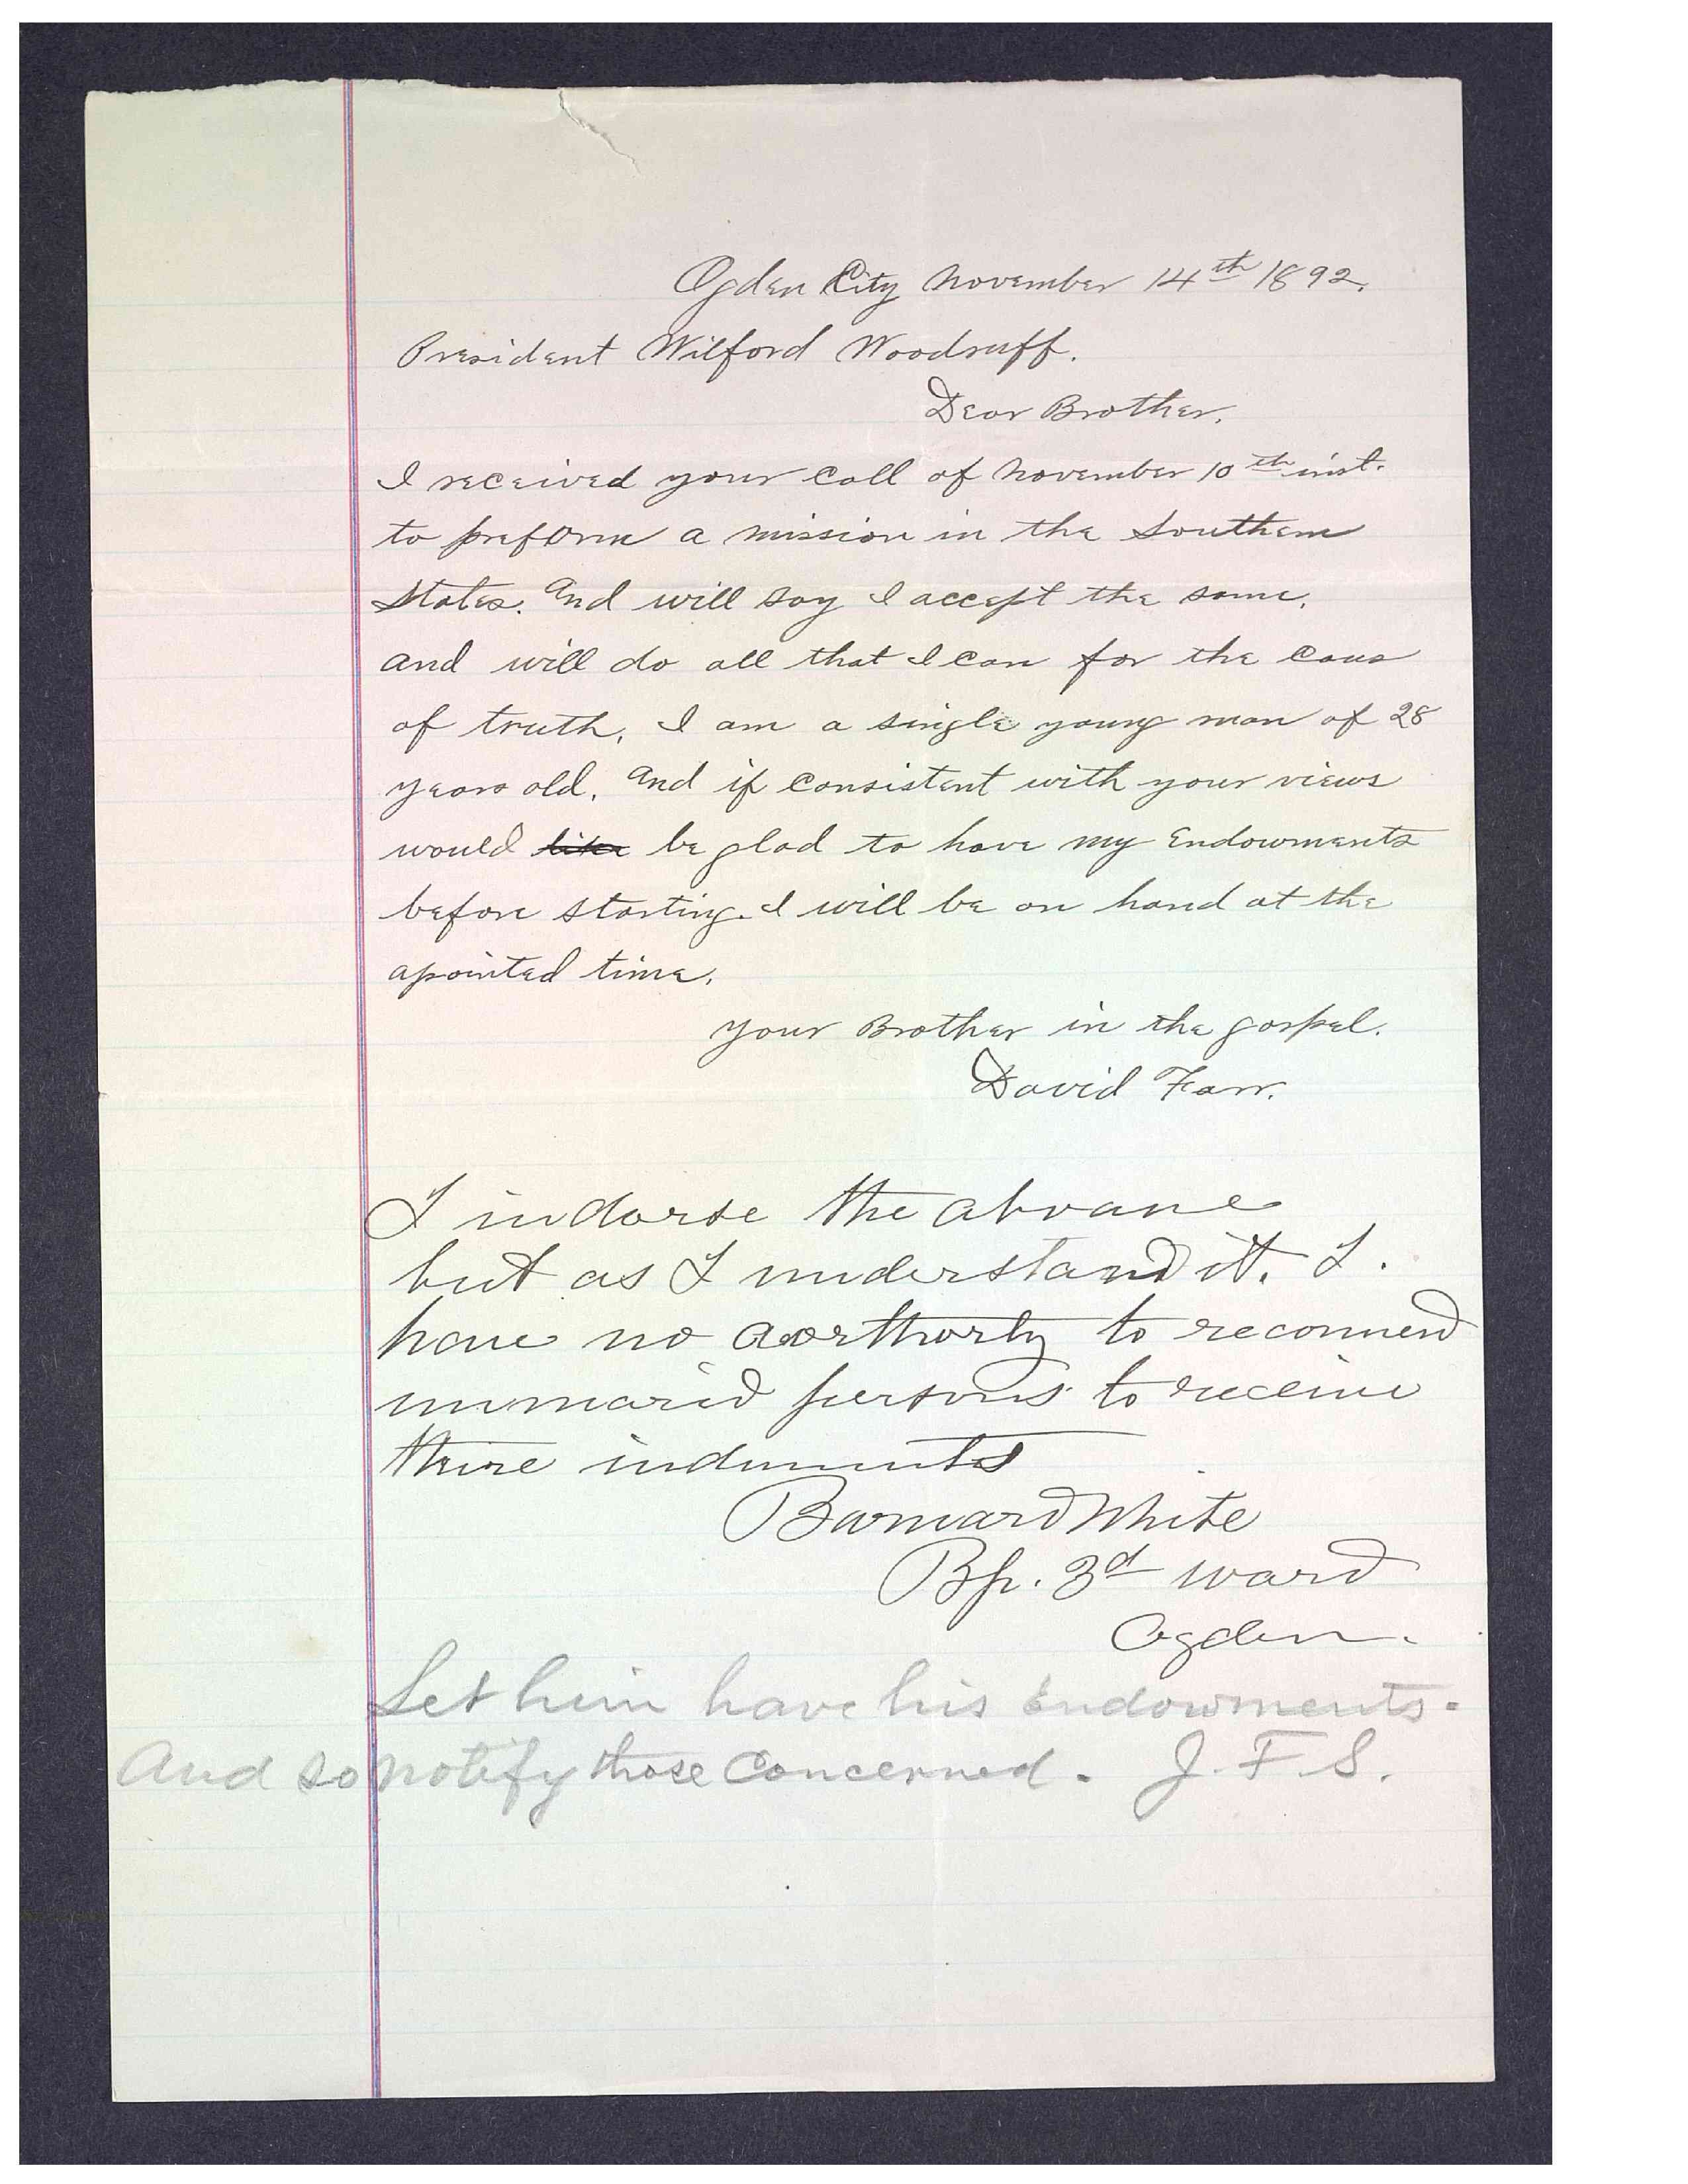 Ogden City November 14th 1892.
President Wilford Woodruff.
Dear Brother.
I received your call of November 10th inst.
to preform a mission in the Southern
States. And will say I accept the same.
and will do all that I can for the caus
of truth. I am a single young man of 28
years old. And if consistent with your views
would like be glad to have my Endowments
before starting. I will be on hand at the
apointed time.
your Brother in the gospel.
David Farr.
I indorse the above
but as I understand it. I.
have no aorthorty to reconmend
unmarid persons to receive
thire induments
Barnard White
Bp. 3d ward
Ogden.
Let him have his Endowments.
And so notify those concerned. J. F. S.